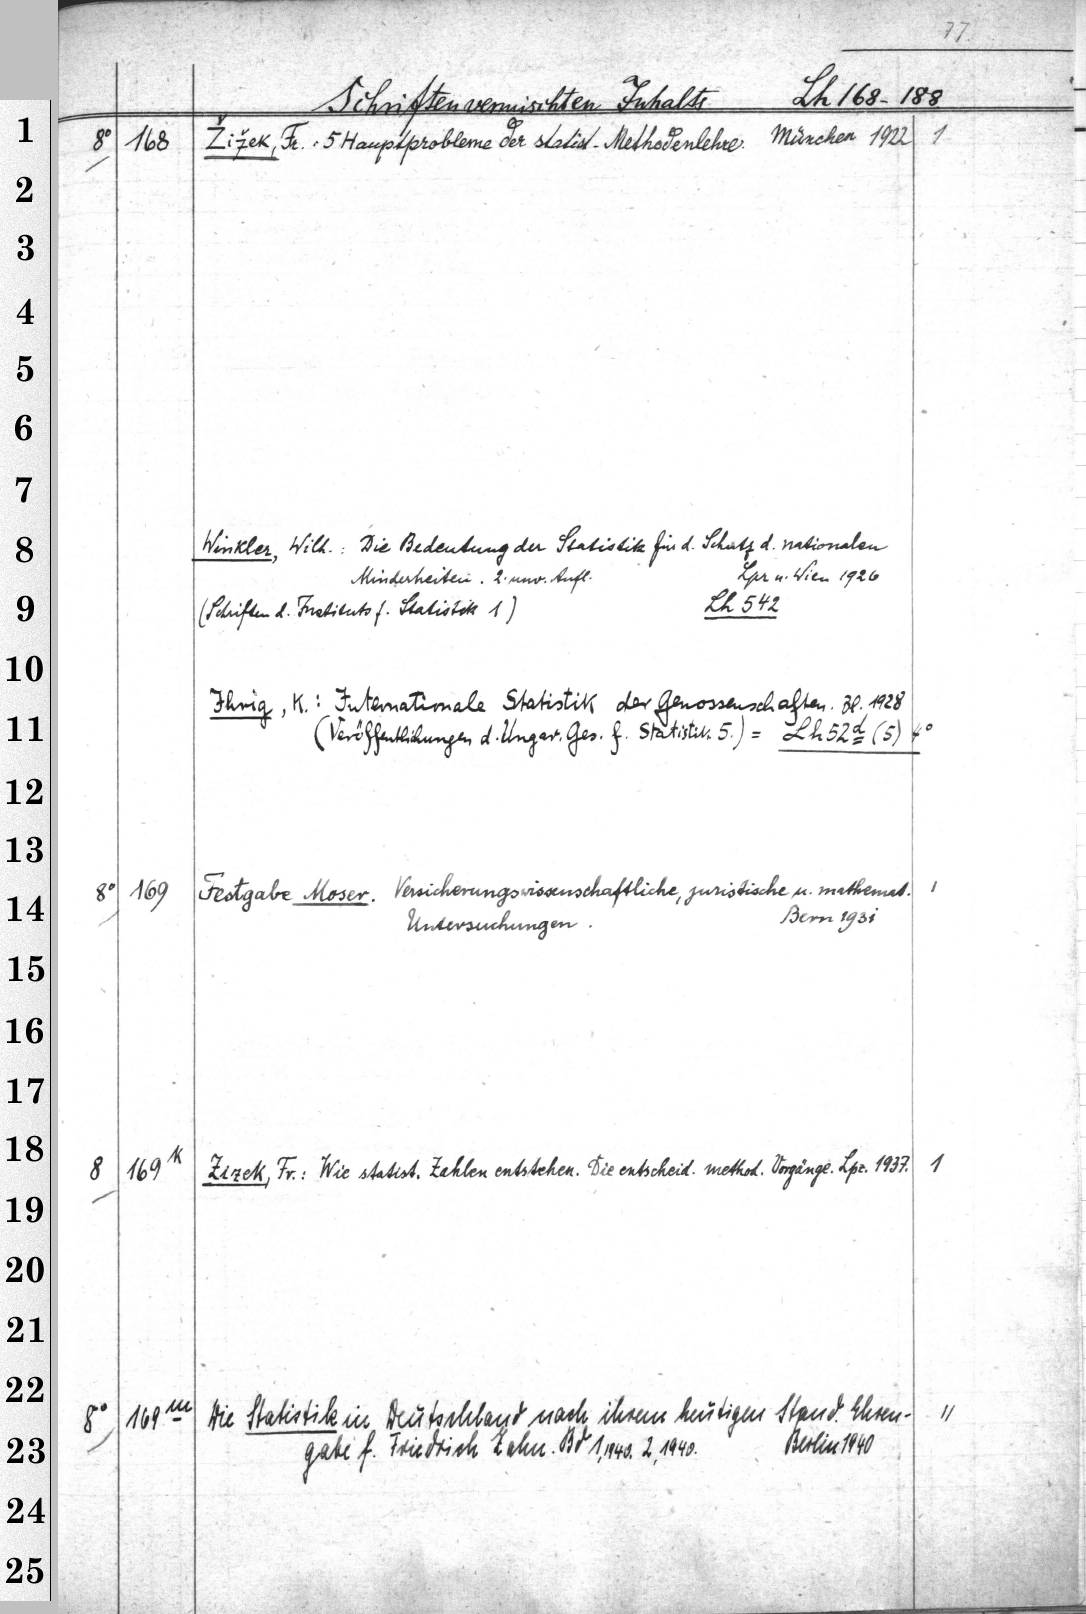 77.
Schriften vermischten Inhalts Lh 168-188
1 8° 168 Žižek, Fr.: 5 Hauptprobleme der statist. Methodenlehre. München 1922 1
2
3
4
5
6
7
8 Winkler, Wilh.: Die Bedeutung der Statistik für d. Schutz d. nationalen
Minderheiten. 2. unv. Aufl. Lpz u. Wien 1926
9 (Schriften d. Instituts f. Statistik 1) Lh 542
10
Ihrig, K.: Internationale Statistik der Genossenschaften. Bl. 1928
11 (Veröffentlichungen d. Ungar. Ges. f. Statistik. 5.) = Lh 52d (5) 4°
12
13
8° 169 Festgabe Moser. Versicherungswissenschaftliche, juristische u. mathemat. 1
14 Untersuchungen. Bern 1931
15
16
17
18 8 169 k Zizek, Fr.: Wie statist. Zahlen entstehen. Die entscheid. method. Vorgänge. Lpz. 1937. 1
19
20
21
22 8° 169 m Die Statistik in Deutschland nach ihrem heutigen Stand. Ehren- 11
23 gabe f. Friedrich Zahn. Bd 1, 1940. 2, 1940. Berlin 1940
24
25